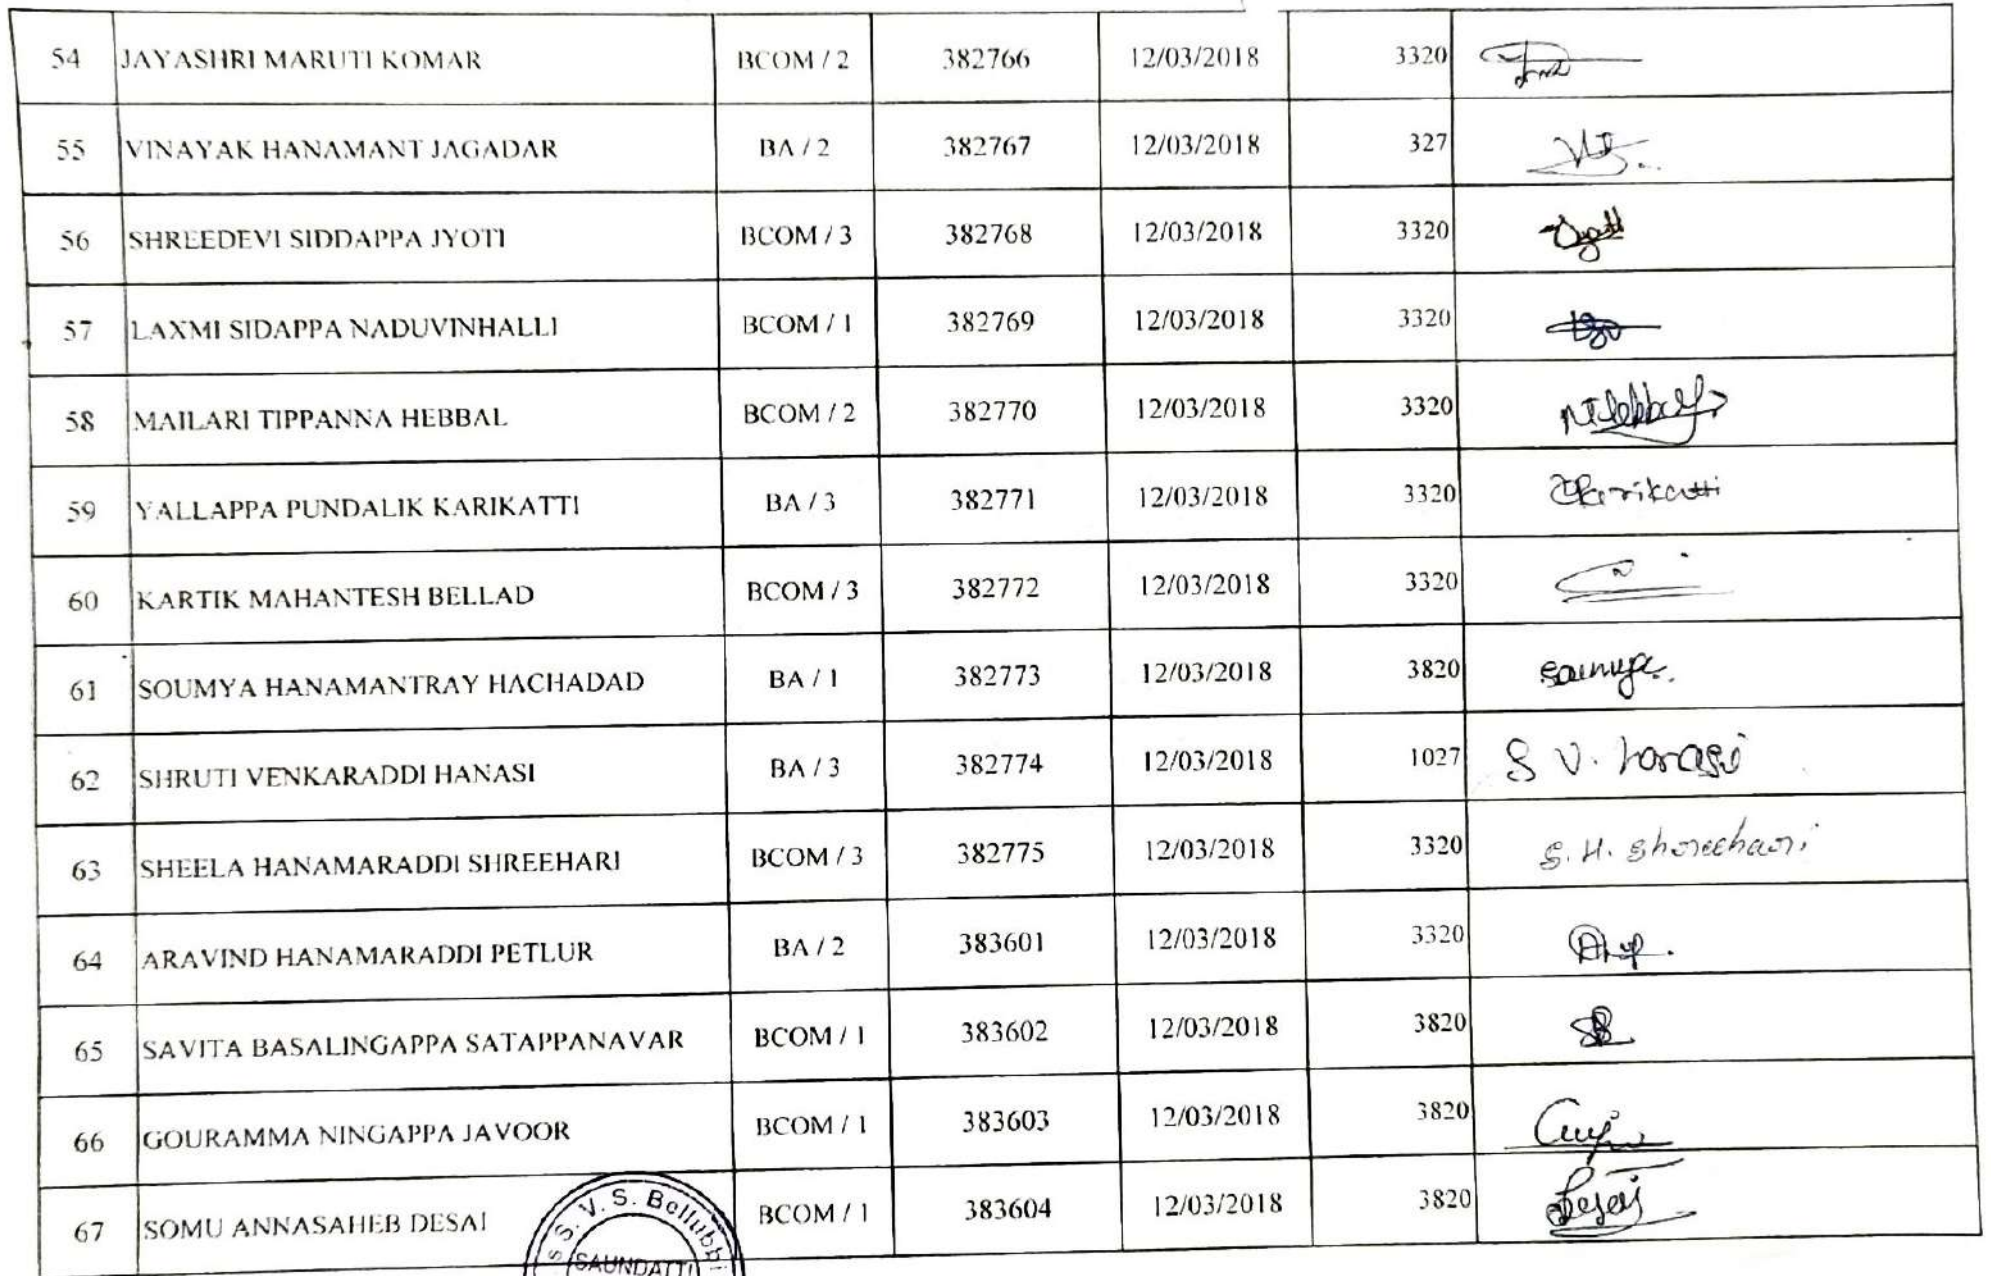 54 JAYASHRI MARUTI KOMAR BCOM / 2 382766 12/03/2018 3320
55 VINAYAK HANAMANT JAGADAR BA / 2 382767 12/03/2018 327
56 SHREEDEVI SIDDAPPA JYOTI BCOM / 3 382768 12/03/2018 3320
57 LAXMI SIDAPPA NADUVINHALLI BCOM / 1 382769 12/03/2018 3320
58 MAILARI TIPPANNA HEBBAL BCOM / 2 382770 12/03/2018 3320
59 YALLAPPA PUNDALIK KARIKATTI BA / 3 382771 12/03/2018 3320 Karikatti
60 KARTIK MAHANTESH BELLAD BCOM / 3 382772 12/03/2018 3320
61 SOUMYA HANAMANTRAY HACHADAD BA / 1 382773 12/03/2018 3820 Soumya.
62 SHRUTI VENKARADDI HANASI BA / 3 382774 12/03/2018 1027 S V.
63 SHEELA HANAMARADDI SHREEHARI BCOM / 3 382775 12/03/2018 3320 S. H. Shreehari
64 ARAVIND HANAMARADDI PETLUR BA / 2 383601 12/03/2018 3320
65 SAVITA BASALINGAPPA SATAPPANAVAR BCOM / 1 383602 12/03/2018 3820
66 GOURAMMA NINGAPPA JAVOOR BCOM / 1 383603 12/03/2018 3820
67 SOMU ANNASAHEB DESAI BCOM / 1 383604 12/03/2018 3820 Desai
S. V. S. Bellubbi
SAUNDATTI